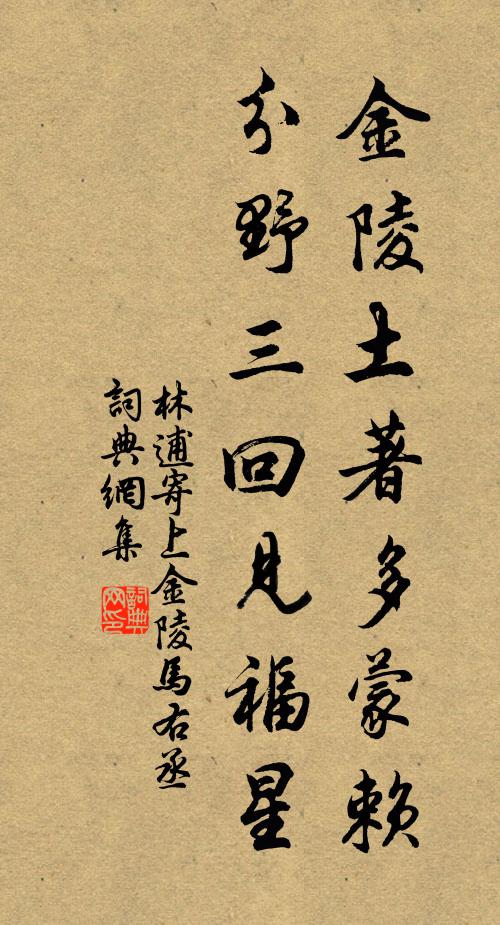 金陵土著多蒙賴
分野三回見福星
林逋寄上金陵馬右丞
詞典網集
詞典网印